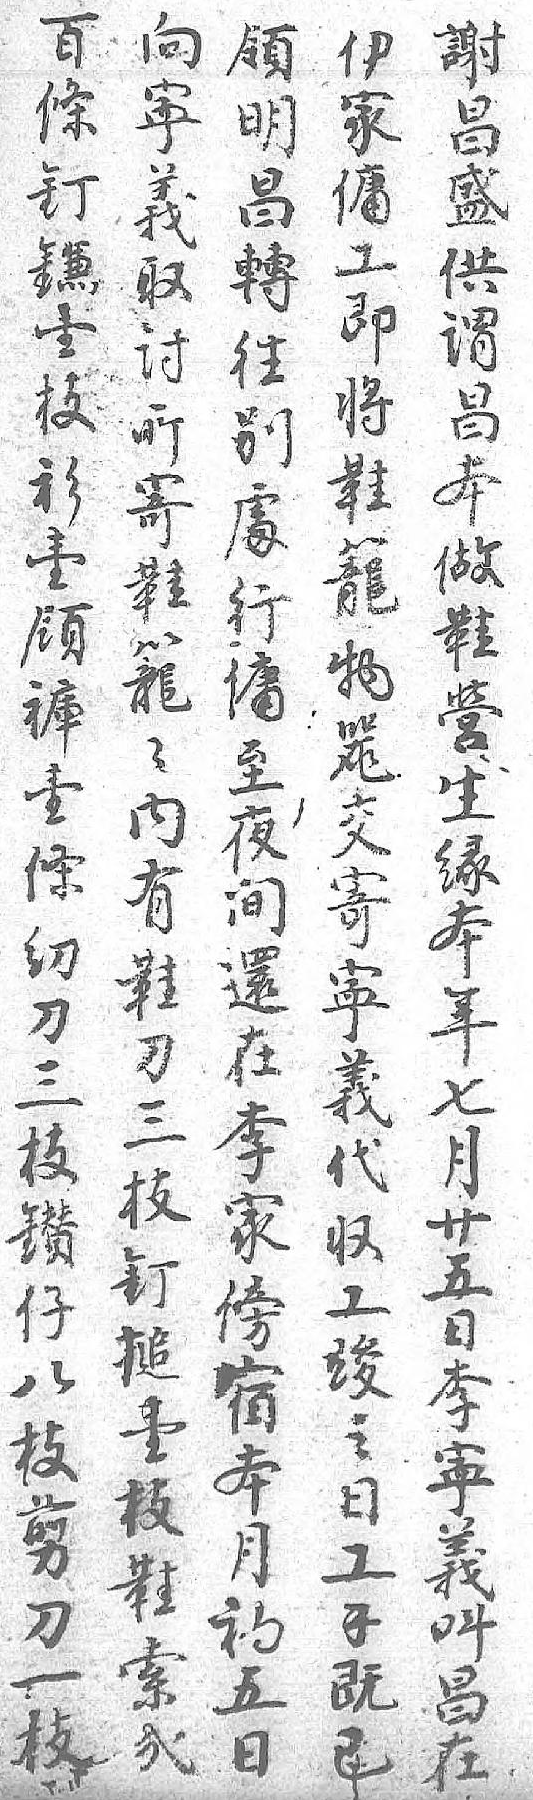 謝昌盛供謂昌本做鞋營生緣本年七月廿五日李寧義叫昌在
伊家傭工即將鞋籠物噐交寄寧義代收工竣之日工手既已
領明昌轉往別處行傭至夜间還在李家傍宿本月初五日
向寧義取討所寄鞋籠〻内有鞋刀三枝釘槌壹枝鞋索弍
百條釘鐮壹枝衫壹領褲壹條刀三枝鑽仔八枝剪刀一枝